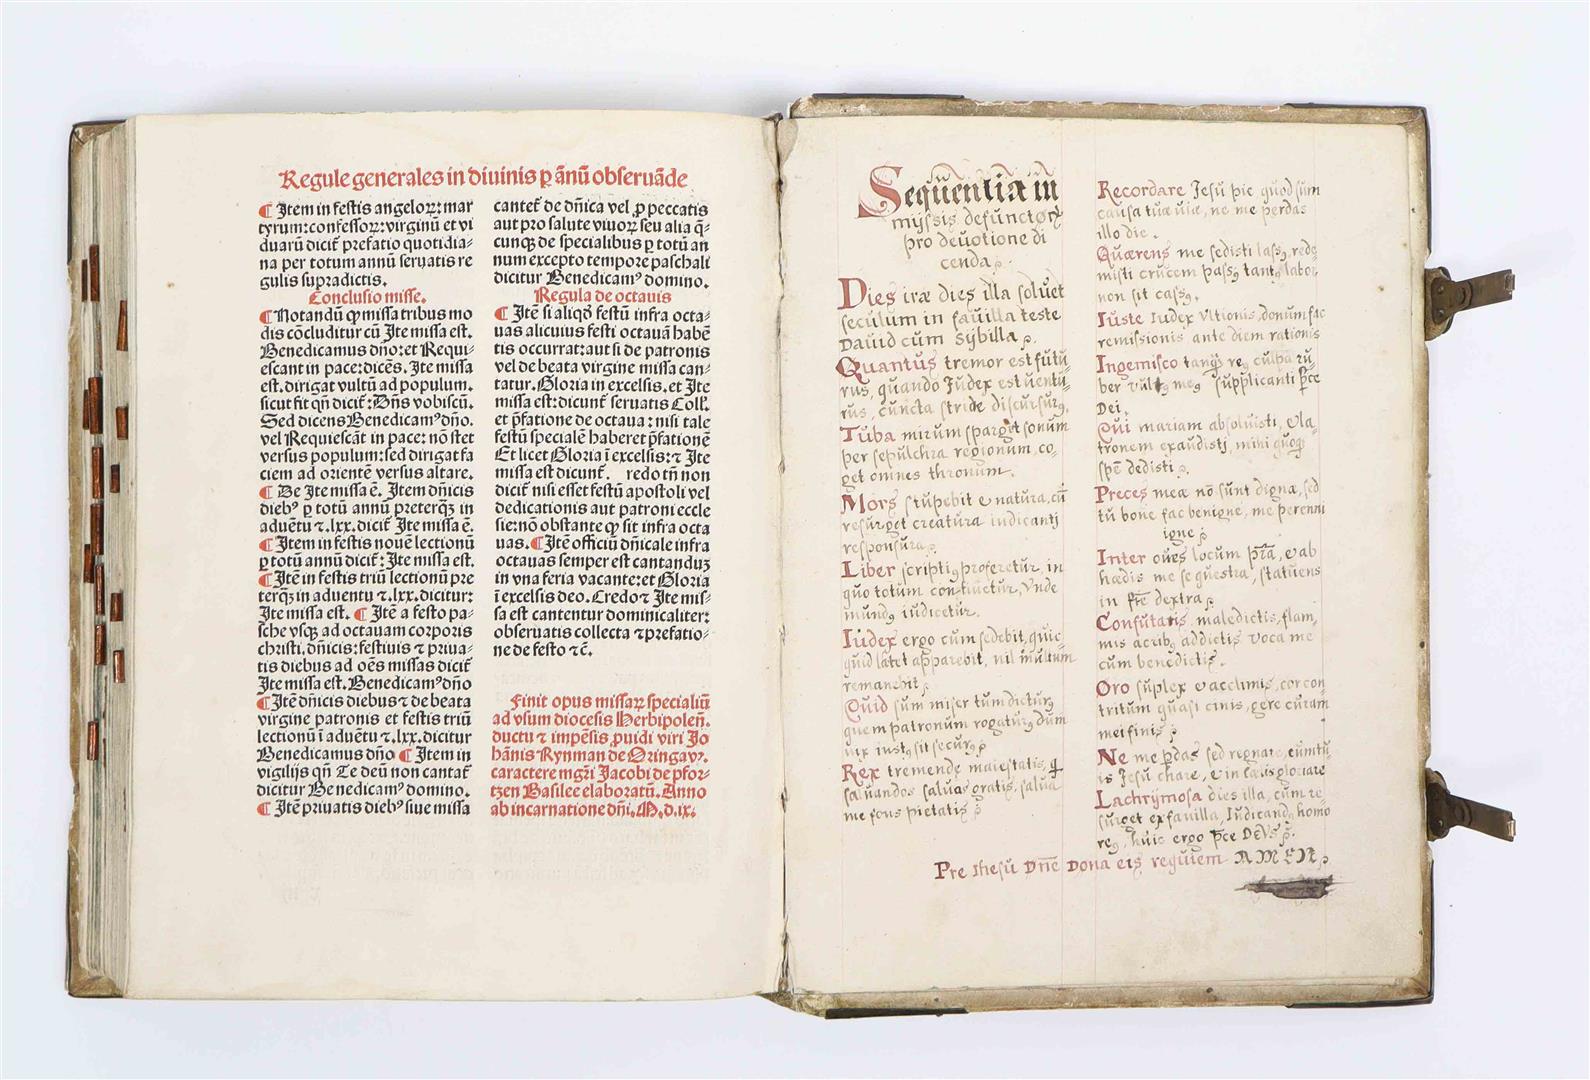 Regule generales in diuinis ꝑ ānū obseruāde
¶ Item in festis angeloꝝ: mar
tyrum: confessoꝝ: virginū et vi
duarū dicit᷑ prefatio quotidia-
na per totum annū seruatis re
gulis supradictis.
Conclusio misse.
¶ Notandū ꝙ missa tribus mo
dis cōcluditur cū Ite missa est.
Benedicamus dn̄o: et Requi-
escant in pace: dicēs. Ite missa
est. dirigat vultū ad populum.
sicut fit qn̄ dicit᷑: Dn̄s vobiscū.
Sed dicens Benedicamꝰ dn̄o.
vel Requiescāt in pace: nō stet
versus populum: sed dirigat fa
ciem ad orientē versus altare.
¶ De Ite missa ē. Item dn̄icis
diebꝰ ꝑ totū annū preterqꝫ in
aduētu ⁊ .lxx. dicit᷑ Ite missa ē.
¶ Item in festis nouē lectionū
ꝑ totū annū dicit᷑: Ite missa est.
¶ Itē in festis triū lectionū pre
terqꝫ in aduentu ⁊ .lxx. dicitur:
Ite missa est. ¶ Itē a festo pa-
sche vsqꝫ ad octauam corporis
christi. dn̄icis: festiuis ⁊ priua-
tis diebus ad oēs missas dicit᷑
Ite missa est. Benedicamꝰ dn̄o
¶ Itē dn̄icis diebus ⁊ de beata
virgine patronis et festis triū
lectionū ī aduētu ⁊ .lxx. dicitur
Benedicamus dn̄o ¶ Item in
vigilijs qn̄ Te deū non cantat᷑
dicitur Benedicamus domino.
¶ Itē priuatis diebꝰ siue missa
cantet᷑ de dn̄ica vel ꝓ peccatis
aut pro salute viuoꝝ seu alia q̄-
cunqꝫ de specialibus ꝑ totū an
num excepto tempore paschali
dicitur Benedicamꝰ domino.
Regula de octauis
¶ Itē si aliqd̄ festū infra octa-
uas alicuius festi octauā habē
tis occurrat: aut si de patronis
vel de beata virgine missa can-
tatur. Gloria in excelsis. et Ite
missa est: dicunt᷑ seruatis Coll᷑.
et p̄fatione de octaua: nisi tale
festū specialē haberet p̄fationē
Et licet Gloria ī excelsis: ⁊ Ite
missa est dicunt᷑. redo tn̄ non
dicit᷑ nisi esset festū apostoli vel
dedicationis aut patroni eccle
sie: nō obstante ꝙ sit infra octa
uas. ¶ Itē officiū dn̄icale infra
octauas semper est cantanduꝫ
in vna feria vacante: et Gloria
ī excelsis deo. Credo ⁊ Ite mis-
sa est cantentur dominicaliter:
obseruatis collecta ⁊ prefatio-
ne de festo ⁊c̄.
Finit opus missaꝝ specialiū
ad vsum diocesis Herbipoleñ.
ductu ⁊ impēsis ꝓuidi viri Jo
hānis Rynman de Oringaw.
caractere mgr̄i Jacobi de pfor-
tzen Basilee elaboratū. Anno
ab incarnatione dn̄i. M.d.ix.
Sequentia in
myssis defunctorꝝ
pro deuotione di
cenda.
Dies iræ dies illa soluet
seculum in fauilla teste
Dauid cum Sybilla.
Quantus tremor est futu
rus, quando Iudex est uentu-
rus, cuncta stride discursurꝰ.
Tuba mirum sparget sonum
per sepulchra regionum, co-
get omnes thronum.
Mors stupebit & natura, cū
resurget creatura iudicantj
responsura.
Liber scriptꝰ proferetur, in
quo totum continetur, Vnde
mundꝰ iudicetur.
Iudex ergo cum sedebit, quic
quid latet apparebit, nil inultum
remanebit
Quid sum miser tum dicturꝰ
quem patronum rogaturꝰ dum
uix iustꝰ sit securꝰ
Rex tremendæ maiestatis, q̄
saluandos saluas gratis, salua
me fons pietatis
Recordare Jesu pie quod sum
causa tuæ uiæ, ne me perdas
illo die.
Quærens me sedisti lassꝰ, rede-
misti crucem passꝰ tantꝰ labor
non sit cassꝰ.
Iuste Iudex Vltionis, donum fac
remissionis ante diem rationis
Ingemisco tanq̄ reꝰ culpa ru-
ber vultꝰ meꝰ supplicanti p̄ce
Dei.
Qui mariam absoluisti, & la-
tronem exaudistj, mihi quoqꝫ
spē dedisti.
Preces meæ nō sunt dignæ, sed
tu bone fac benigne, me perenni
igne
Inter oues locum p̄sta, & ab
hædis me sequestra, statuens
in p̄te dextra
Confutatis maledictis, flam-
mis acribꝰ addictis voca me
cum benedictis.
Oro suplex & acclinis, cor con
tritum quasi cinis, gere curam
mei finis
Ne me p̄das sed regnare, cum tu-
is Jesu chare, & in cælis gloriare
Lachrijmosa dies illa, cum re-
surget ex fauilla, Iudicandꝰ homo
reꝰ, huic ergo p̄ce DEVS
Pie Ihesu Dn̄e Dona eis requiem AMEN